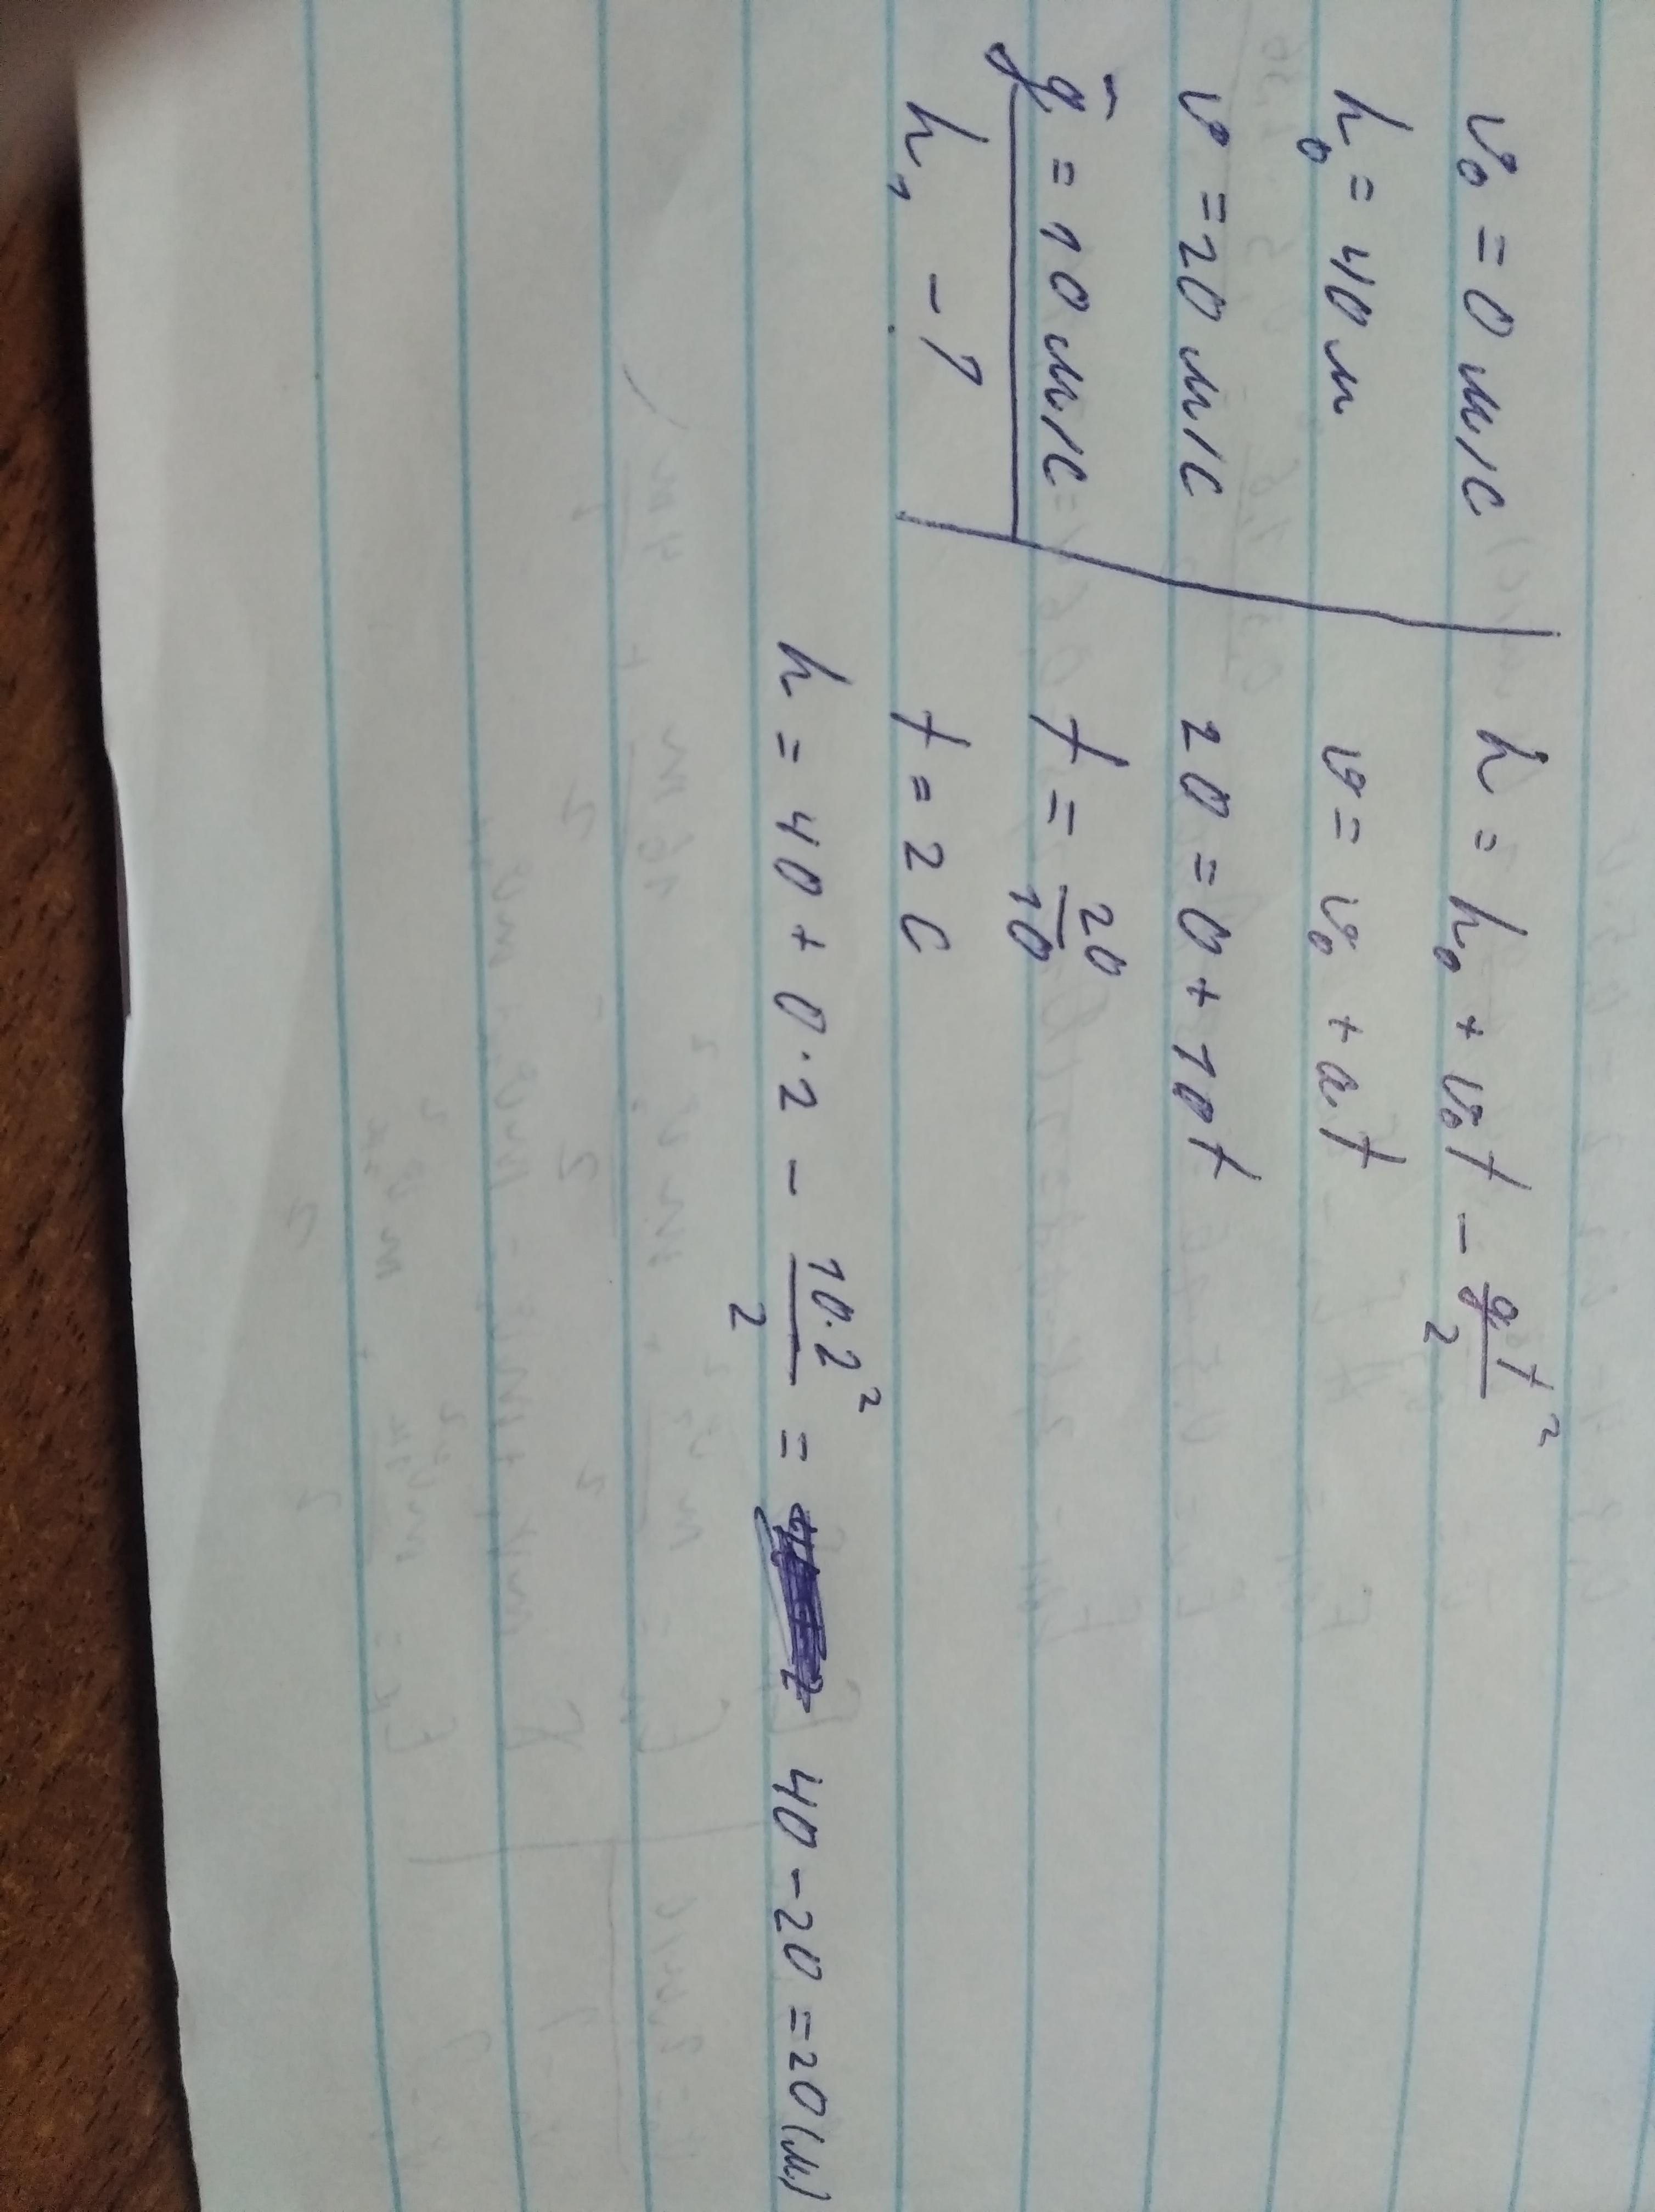 v₀ = 0 м/с
h₀ = 40 м
v = 20 м/с
g = 10 м/с
h₁ - ?
h = h₀ + v₀t - gt²/2
v = v₀ + at
20 = 0 + 10t
t = 20/10
t = 2 с
h = 40 + 0·2 - 10·2²/2 = 40 - 20 = 20 (м)